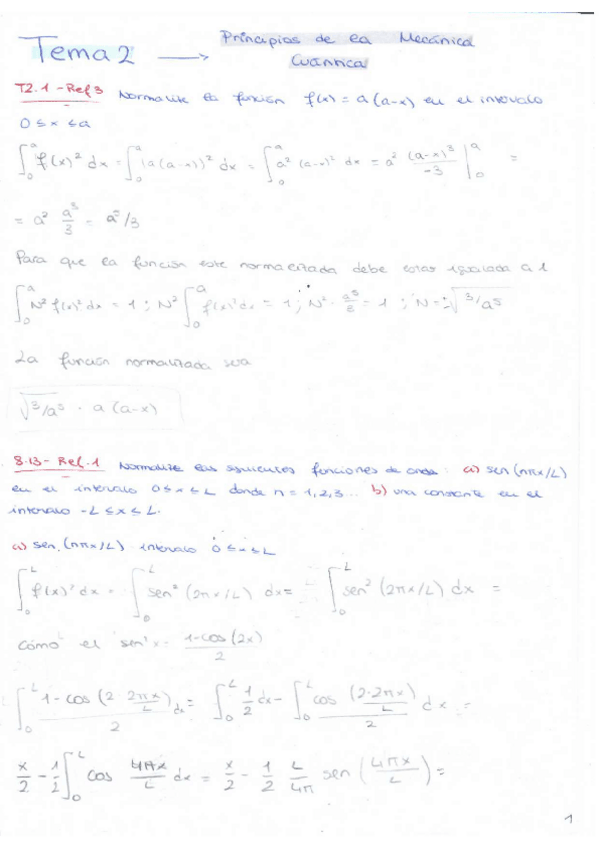 Tema 2 → Principios de la Mecánica Cuántica
T2.1 - Ref 3 Normalize la función f(x) = a (a-x) en el intervalo
0 ≤ x ≤ a
∫₀ᵃ f(x)² dx = ∫₀ᵃ (a(a-x))² dx = ∫₀ᵃ a² (a-x)² dx = a² (a-x)³/-3 |₀ᵃ =
= a² a³/3 = a⁵/3
Para que la función este normalizada debe estar igualada a 1
∫₀ᵃ N² f(x)² dx = 1 ; N² ∫₀ᵃ f(x)² dx = 1 ; N² · a⁵/3 = 1 ; N = ± √3/a⁵
La función normalizada sera
√3/a⁵ · a (a-x)
8.13 - Ref. 1 Normalize las siguientes funciones de onda: a) sen (nπx/L)
en el intervalo 0 ≤ x ≤ L donde n = 1, 2, 3... b) una constante en el
intervalo -L ≤ x ≤ L.
a) sen (nπx/L) intervalo 0 ≤ x ≤ L
∫₀ᴸ f(x)² dx = ∫₀ᴸ sen² (2πx/L) dx = ∫₀ᴸ sen² (2πx/L) dx =
como el sen²x = 1-cos(2x)/2
∫₀ᴸ 1-cos (2· 2πx/L)/2 dx = ∫₀ᴸ 1/2 dx - ∫₀ᴸ cos (2·2πx/L)/2 dx =
x/2 - 1/2 ∫₀ᴸ cos 4πx/L dx = x/2 - 1/2 L/4π sen (4πx/L) =
1